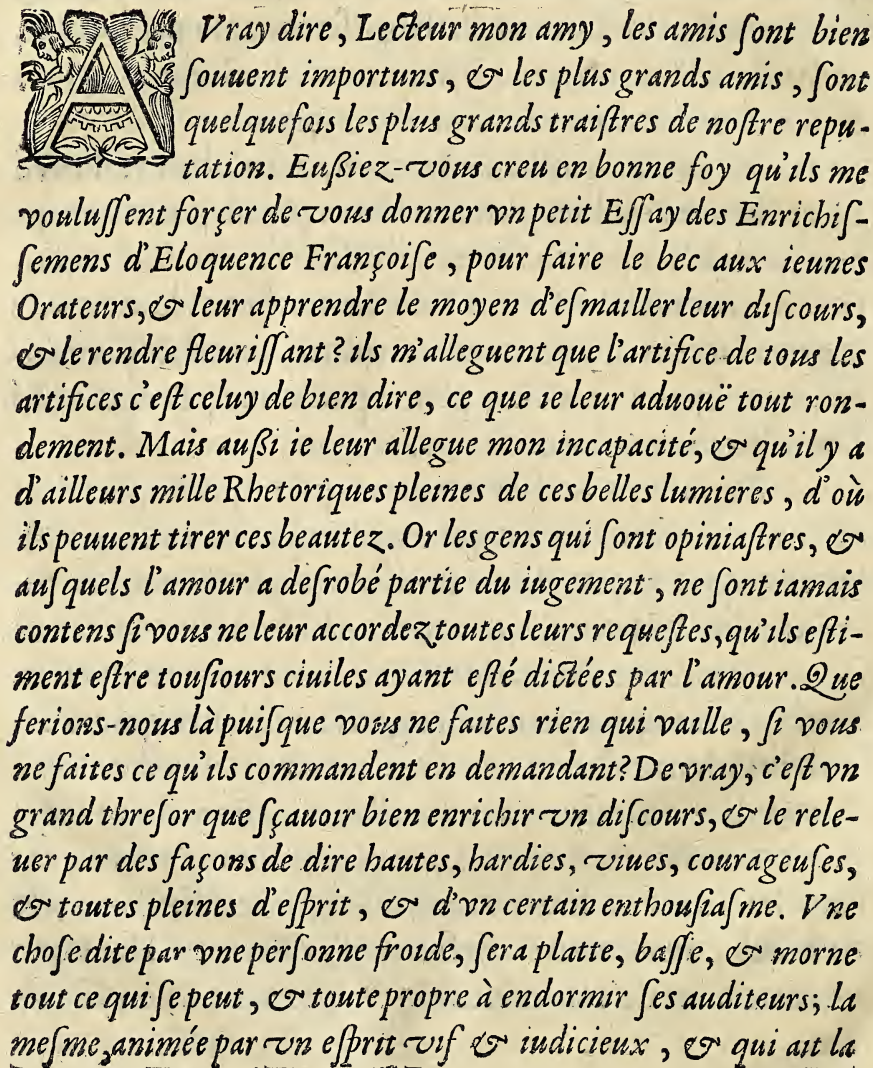 A Vray dire, Lecteur mon amy, les amis ſont bien
ſouuent importuns, & les plus grands amis, ſont
quelquefois les plus grands traiſtres de noſtre repu-
tation. Eußiez-vous creu en bonne foy qu'ils me
vouluſſent forçer de vous donner vn petit Eſſay des Enrichiſ-
ſemens d'Eloquence Françoiſe, pour faire le bec aux ieunes
Orateurs, & leur apprendre le moyen d'eſmailler leur diſcours,
& le rendre fleuriſſant? ils m'alleguent que l'artifice de tous les
artifices c'eſt celuy de bien dire, ce que ie leur aduouë tout ron-
dement. Mais außi ie leur allegue mon incapacité, & qu'il y a
d'ailleurs mille Rhetoriques pleines de ces belles lumieres, d'où
ils peuuent tirer ces beautez. Or les gens qui ſont opiniaſtres, &
auſquels l'amour a deſrobé partie du iugement, ne ſont iamais
contens ſi vous ne leur accordez toutes leurs requeſtes, qu'ils eſti-
ment eſtre touſiours ciuiles ayant eſté dictées par l'amour. Que
ferions-nous là puiſque vous ne faites rien qui vaille, ſi vous
ne faites ce qu'ils commandent en demandant? De vray, c'eſt vn
grand threſor que ſçauoir bien enrichir vn diſcours, & le rele-
uer par des façons de dire hautes, hardies, viues, courageuſes,
& toutes pleines d'eſprit, & d'vn certain enthouſiaſme. Vne
choſe dite par vne perſonne froide, ſera platte, baſſe, & morne
tout ce qui ſe peut, & toute propre à endormir ſes auditeurs; la
meſme, animée par vn eſprit vif & iudicieux, & qui ait la